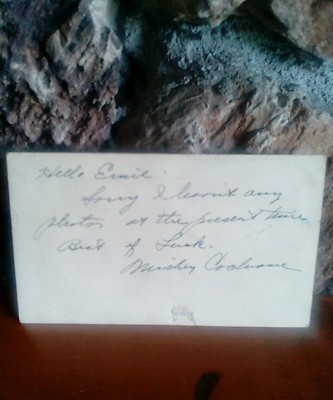 Hello Ernie.
Sorry I haven't any
photos at the present time.
Best of Luck.
Mickey Cochrane